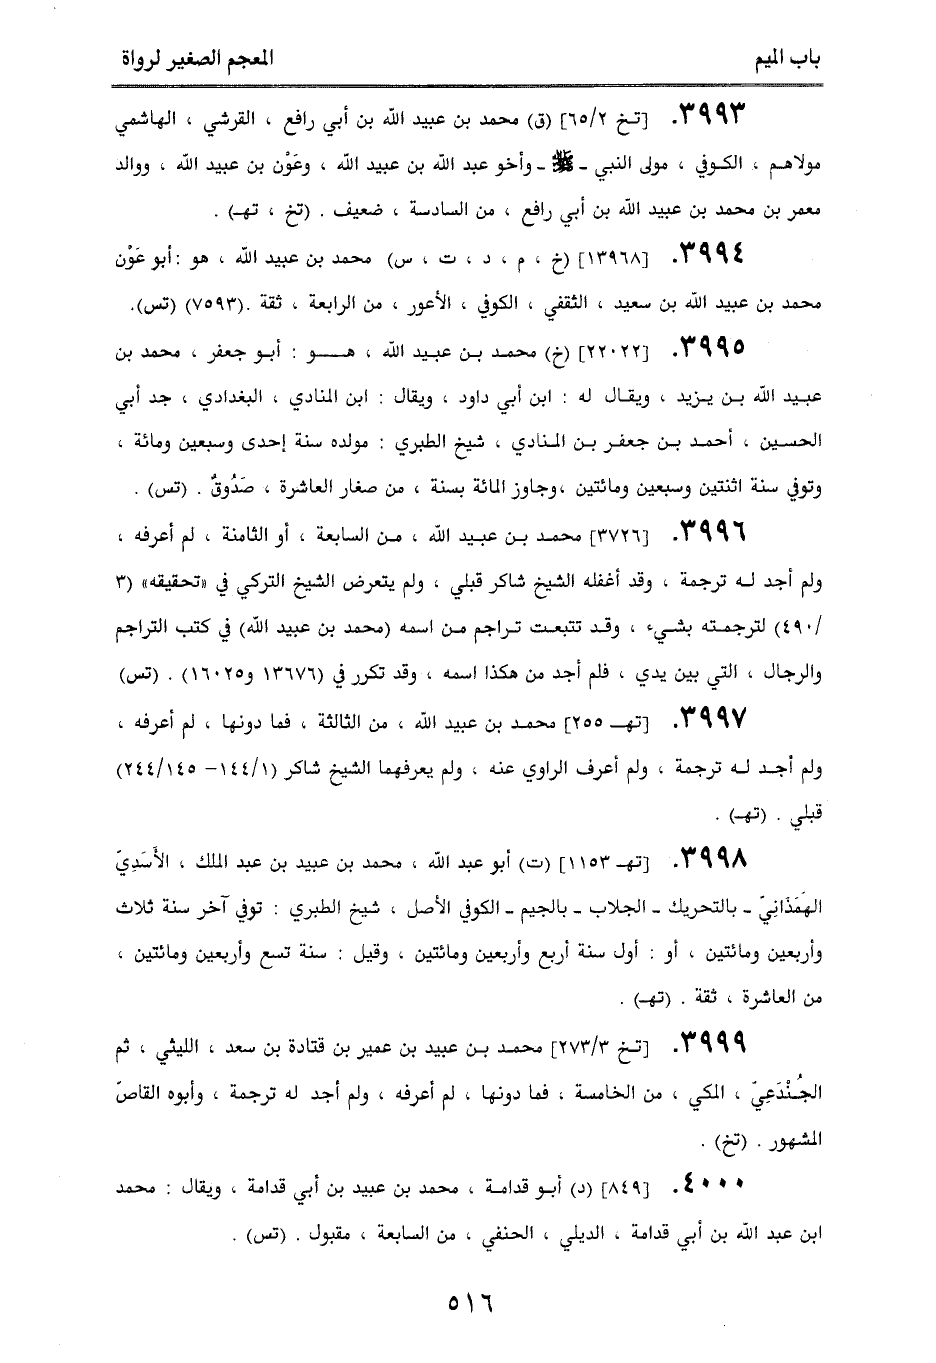 باب الميم
المعجم الصغير لرواة
٣٩٩٣. [تخ ٦٥/٢] (ق) محمد بن عبيد الله بن أبي رافع ، القرشي ، الهاشمي
مولاهم ، الكوفي ، مولى النبي ـ ﷺ ـ وأخو عبد الله بن عبيد الله ، وعَوْن بن عبيد الله ، ووالد
معمر بن محمد بن عبيد الله بن أبي رافع ، من السادسة ، ضعيف . (تخ ، تهـ) .
٣٩٩٤. [١٣٩٦٨] (خ ، م ، د ، ت ، س) محمد بن عبيد الله ، هو : أبو عَوْن
محمد بن عبيد الله بن سعيد ، الثقفي ، الكوفي ، الأعور ، من الرابعة ، ثقة .(٧٥٩٣) (تس).
٣٩٩٥. [٢٢٠٢٢] (خ) محمد بن عبيد الله ، هـو : أبو جعفر ، محمد بن
عبيد الله بن يزيد ، ويقال له : ابن أبي داود ، ويقال : ابن المنادي ، البغدادي ، جد أبي
الحسين ، أحمد بن جعفر بن المنادي ، شيخ الطبري : مولده سنة إحدى وسبعين ومائة ،
وتوفي سنة اثنتين وسبعين ومائتين ،وجاوز المائة بسنة ، من صغار العاشرة ، صَدُوقٌ . (تس) .
٣٩٩٦. [٣٧٢٦] محمد بن عبيد الله ، من السابعة ، أو الثامنة ، لم أعرفه ،
ولم أجد له ترجمة ، وقد أغفله الشيخ شاكر قبلي ، ولم يتعرض الشيخ التركي في «تحقيقه» (٣
/٤٩٠) لترجمته بشيء ، وقد تتبعت تراجم من اسمه (محمد بن عبيد الله) في كتب التراجم
والرجال ، التي بين يدي ، فلم أجد من هكذا اسمه ، وقد تكرر في (١٣٦٧٦ و١٦٠٢٥) . (تس)
٣٩٩٧. [تهـ ٢٥٥] محمد بن عبيد الله ، من الثالثة ، فما دونها ، لم أعرفه ،
ولم أجد له ترجمة ، ولم أعرف الراوي عنه ، ولم يعرفهما الشيخ شاكر (١٤٤/١– ٢٤٤/١٤٥)
قبلي . (تهـ) .
٣٩٩٨. [تهـ ١١٥٣] (ت) أبو عبد الله ، محمد بن عبيد بن عبد الملك ، الأَسَدِيّ
الهَمَذَانِيّ ـ بالتحريك ـ الجلاب ـ بالجيم ـ الكوفي الأصل ، شيخ الطبري : توفي آخر سنة ثلاث
وأربعين ومائتين ، أو : أول سنة أربع وأربعين ومائتين ، وقيل : سنة تسع وأربعين ومائتين ،
من العاشرة ، ثقة . (تهـ) .
٣٩٩٩. [تخ ٢٧٣/٣] محمد بن عبيد بن عمير بن قتادة بن سعد ، الليثي ، ثم
الجُنْدَعِيّ ، المكي ، من الخامسة ، فما دونها ، لم أعرفه ، ولم أجد له ترجمة ، وأبوه القاصّ
المشهور . (تخ) .
٤٠٠٠. [٨٤٩] (د) أبو قدامة ، محمد بن عبيد بن أبي قدامة ، ويقال : محمد
ابن عبد الله بن أبي قدامة ، الديلي ، الحنفي ، من السابعة ، مقبول . (تس) .
٥١٦